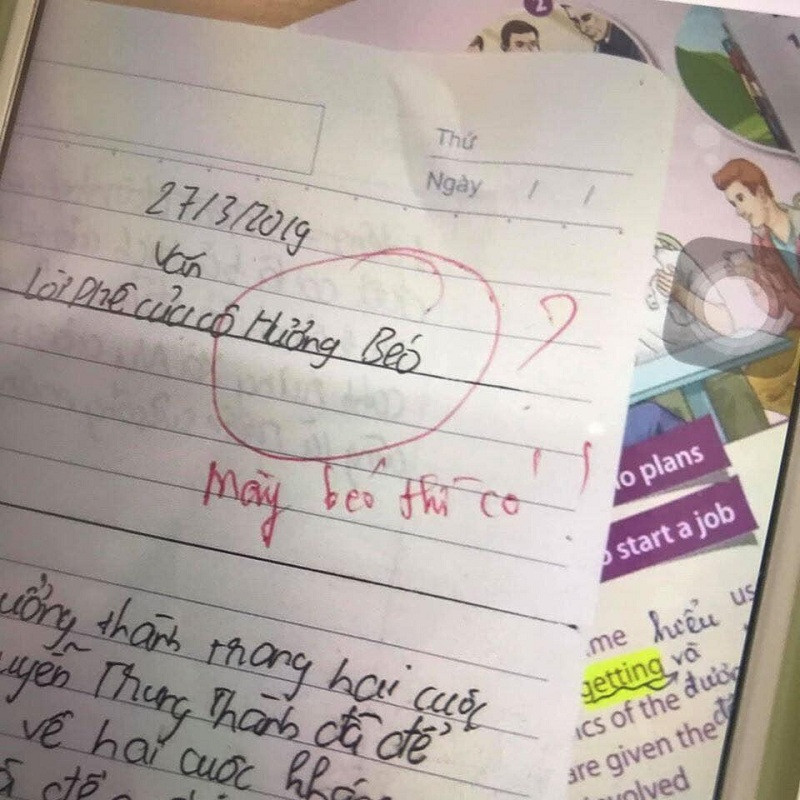 2
Thứ
Ngày / /
27/3/2019
Văn
Lời phê của cô Hường Béo
?
Mày béo thì có !
ưởng thành trong hai cuộc
uyễn Trung Thành đã để
về hai cuộc khán
đề
o plans
start a job
me hiểu us
getting và
ics of the được
are given the
volved